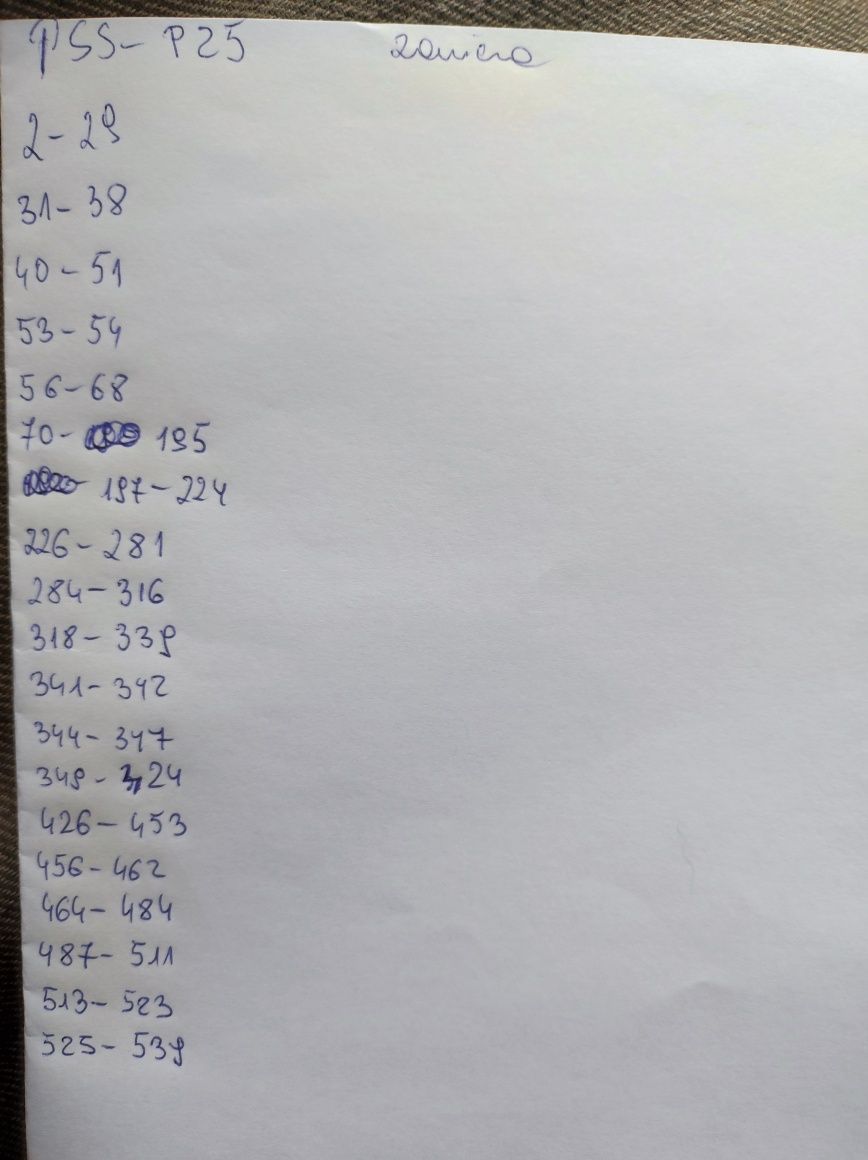 PSS- P25 zawiera
2-29
31-38
40-51
53-54
56-68
70- 195
197-224
226-281
284-316
318-339
341-342
344-347
349-424
426-453
456-462
464-484
487-511
513-523
525-539